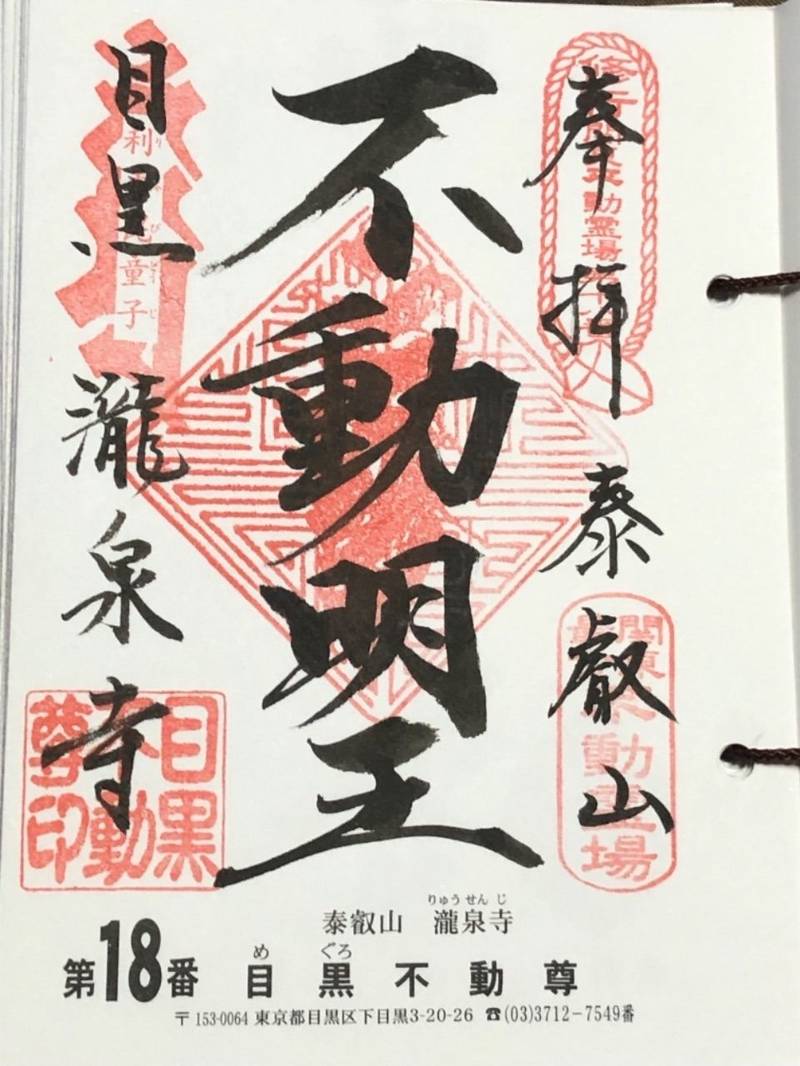 奉拝 泰叡山
不動明王
目黒 瀧泉寺
関東
不動霊場
童子
目黒
不動
尊印
りゅうせんじ
泰叡山 瀧泉寺
め ぐろ
第18番 目黒不動尊
〒153-0064 東京都目黒区下目黒3-20-26 ☎(03)3712-7549番